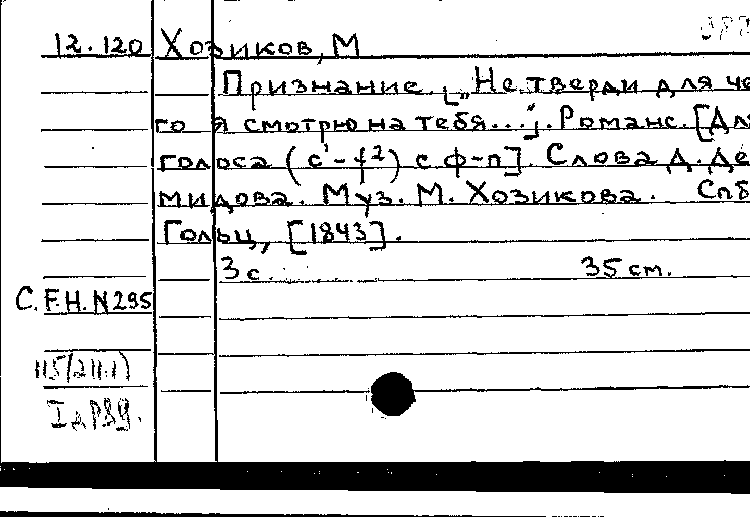 12.120 Хозиков, М
Признание. [„Не тверди для че
го я смотрю на тебя..."]. Романс. [Для
голоса (с¹-f²) с ф-п]. Слова Д. Де
мидова. Муз. М. Хозикова. Спб
Гольц, [1843].
3 с. 35 см.
C.F.H. N 295